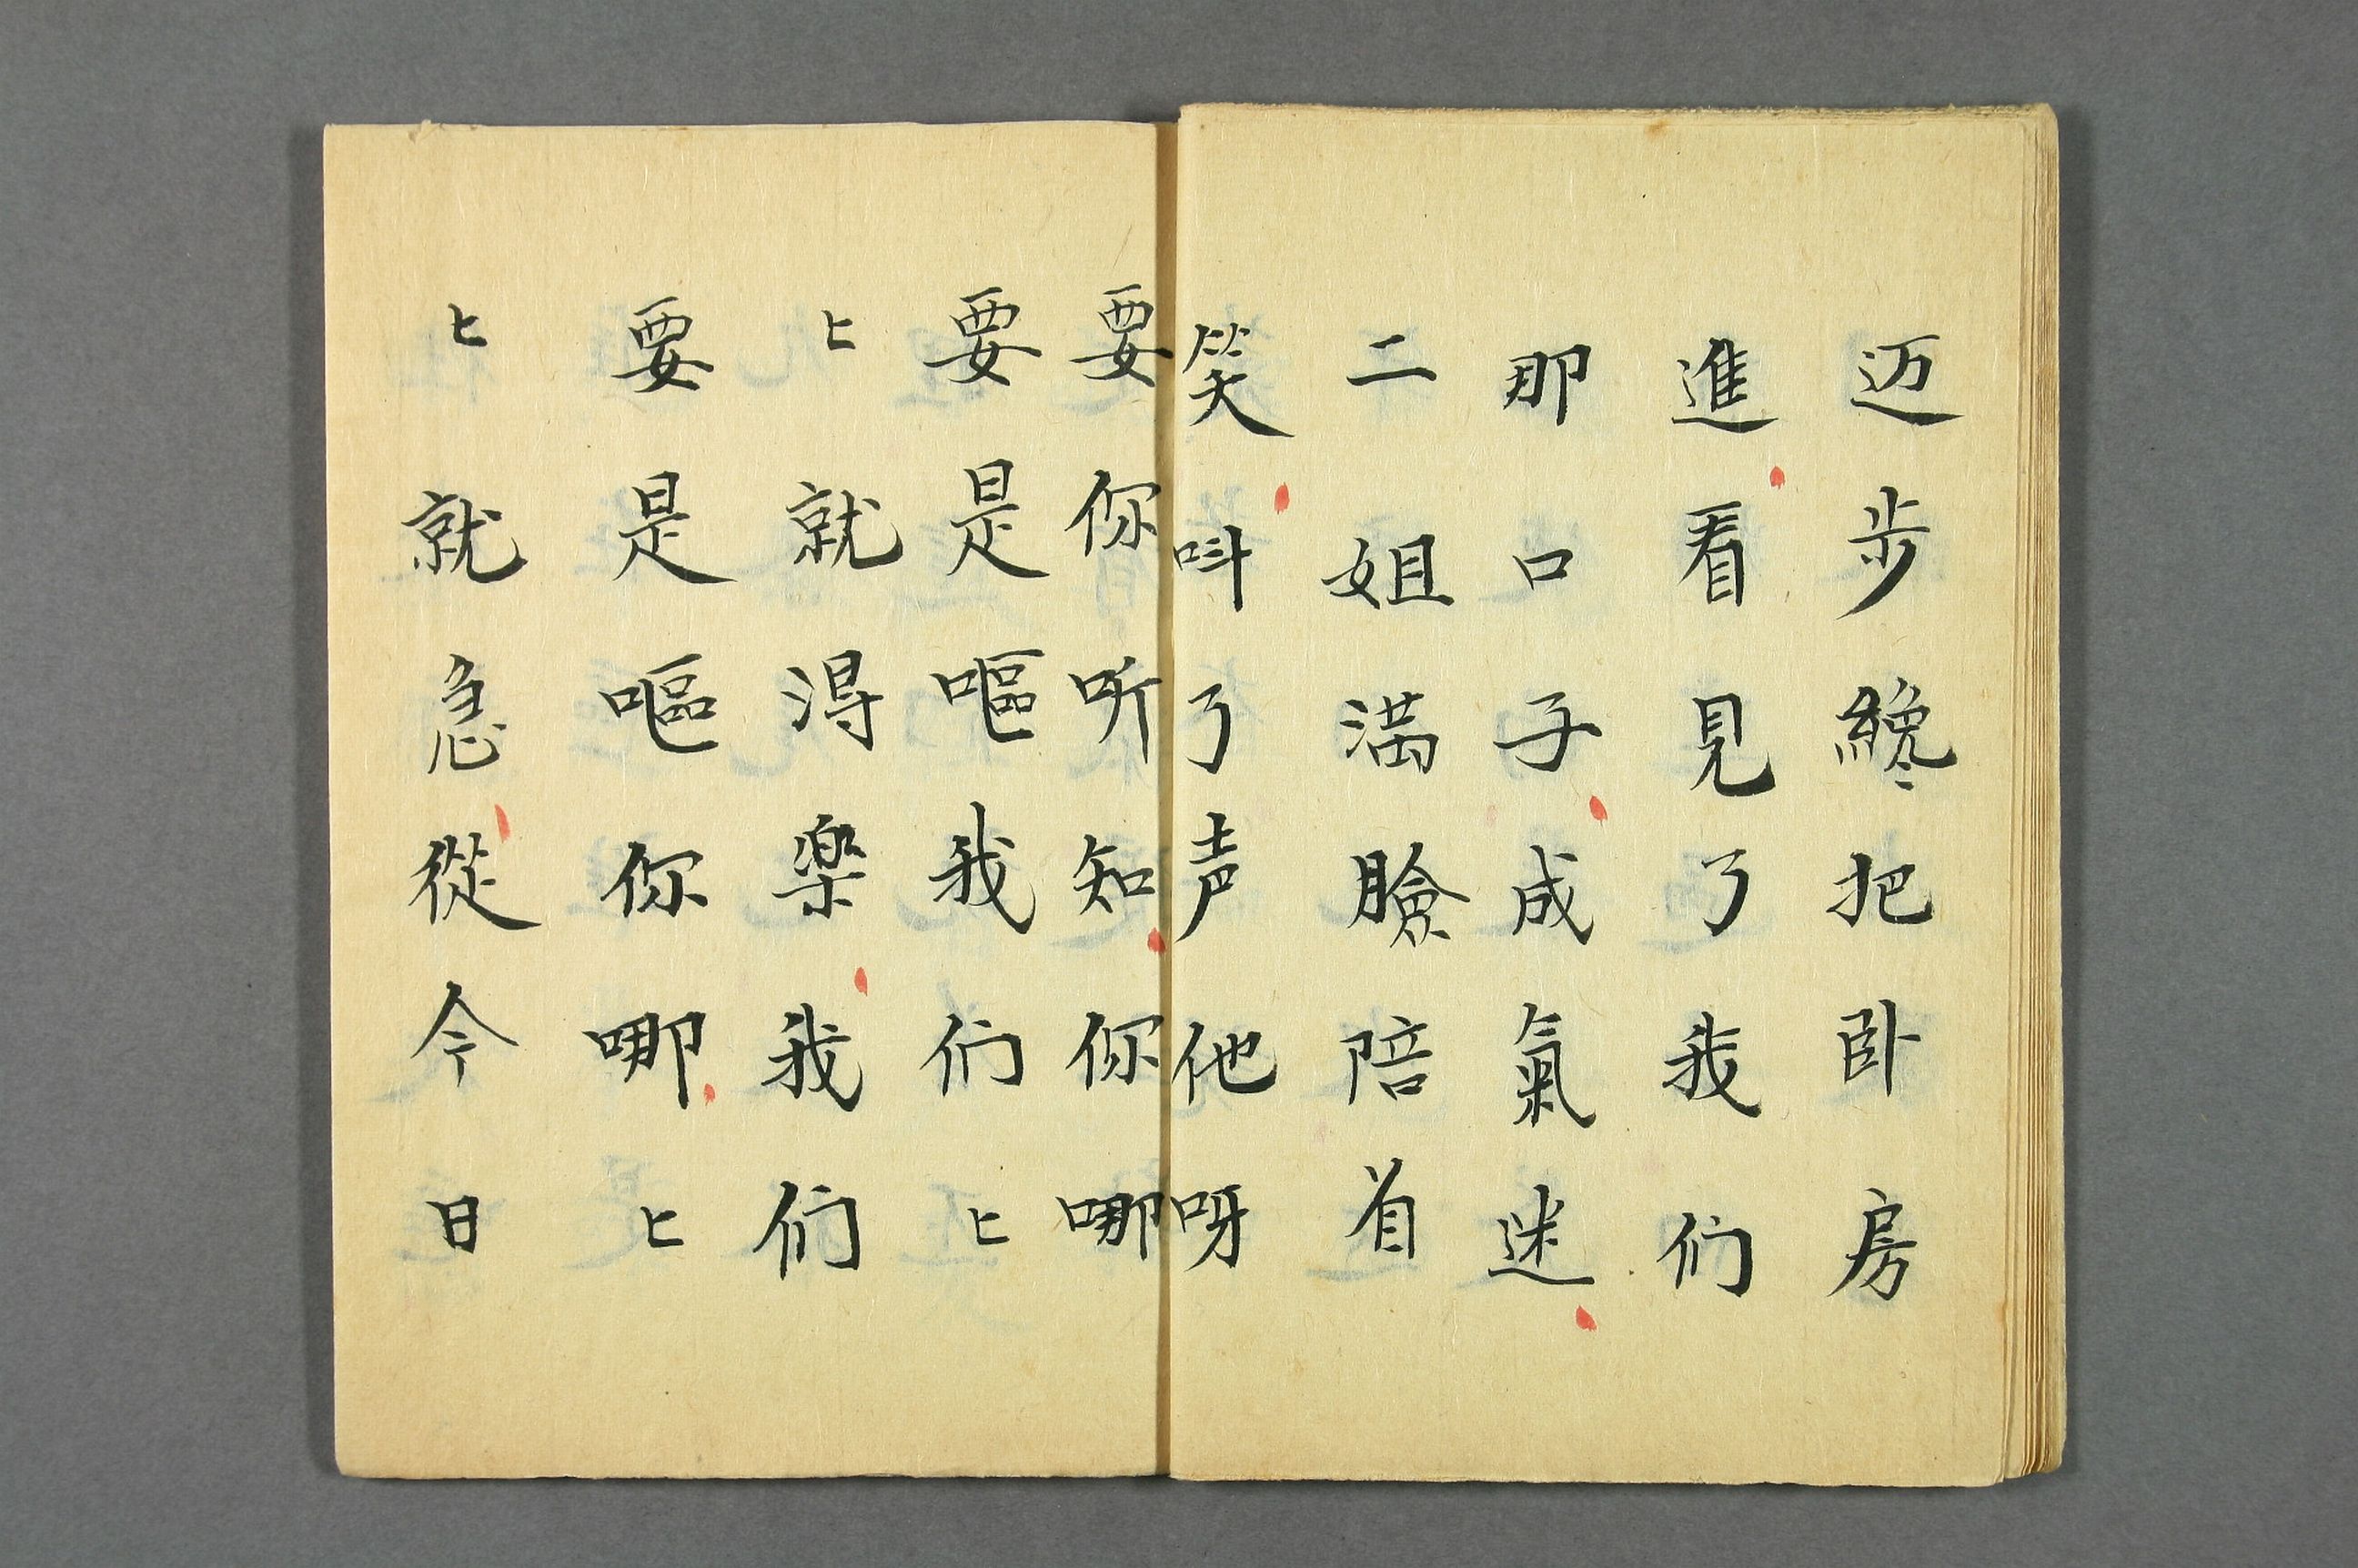 迈步纔把卧房
進看見了我们
那口子成氣迷
二姐滿臉陪着
笑呌了声他呀
要你听知你哪
要是嘔我们匕
匕就得楽我们
要是嘔你哪匕
匕就急從今日